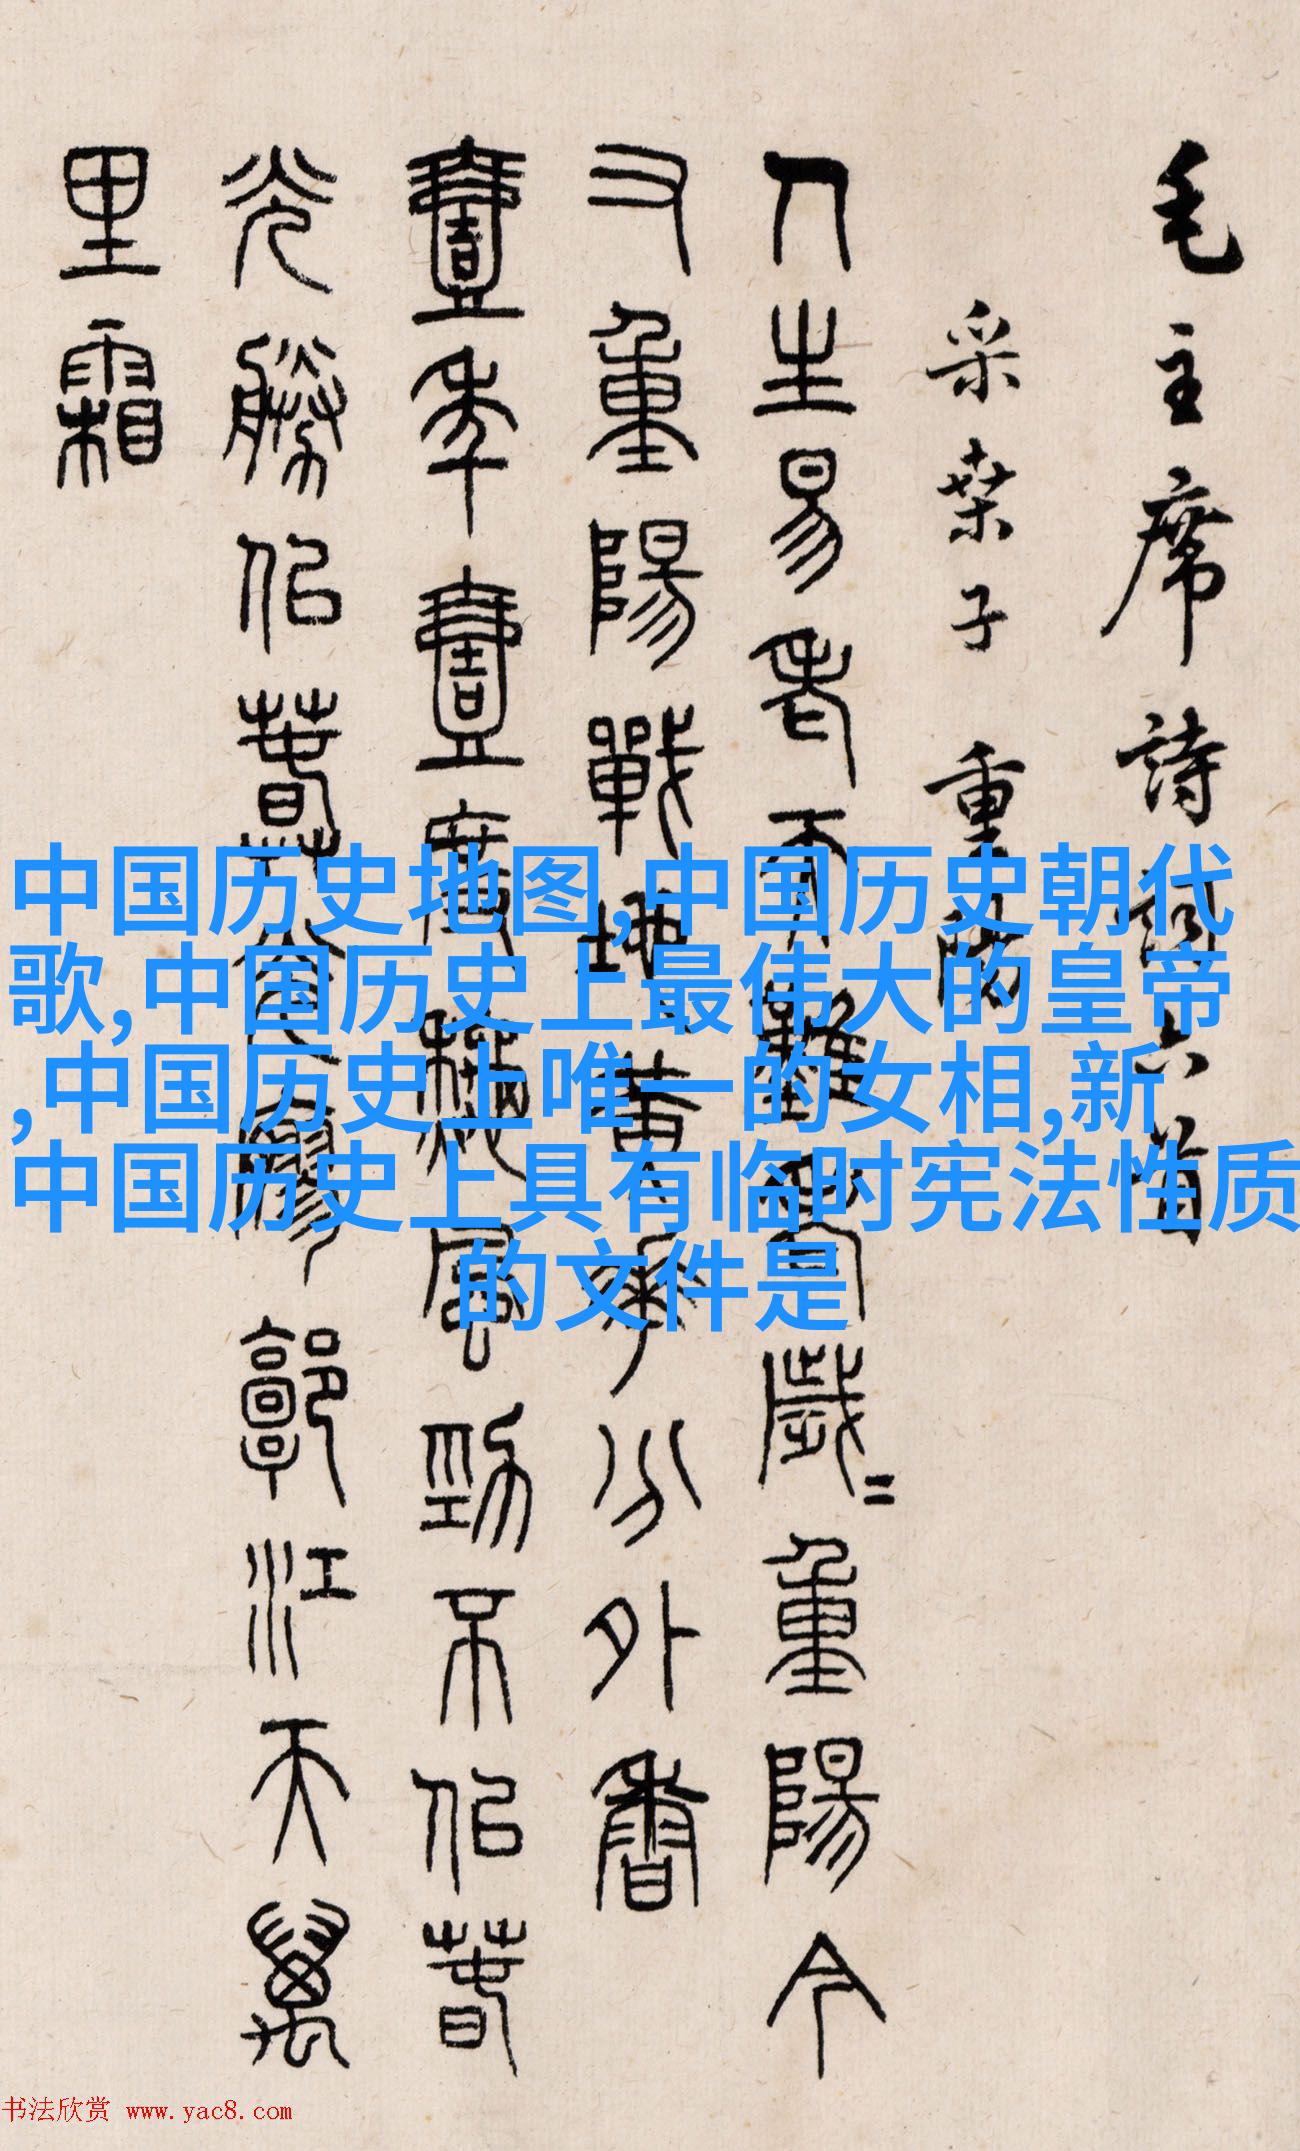 毛主席詩詞六首
采桒子 重陽
人生易老天難老歲〻重陽今
又重陽戰地黃華分外香
壹年壹度秋風勁不佀春
光勝佀春光寥郭江天萬
里霜
中国历史地图,中国历史朝代
歌,中国历史上最伟大的皇帝
,中国历史上唯一的女相,新
中国历史上具有临时宪法性质
的文件是
书法欣赏 www.yac8.com